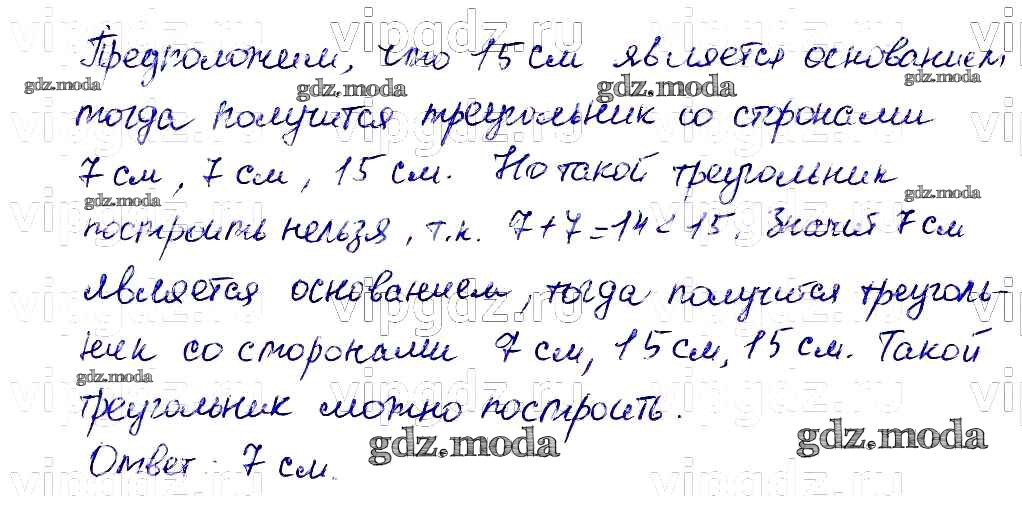 Предположим, что 15 см является основанием,
тогда получится треугольник со сторонами
7 см, 7 см, 15 см. Но такой треугольник
построить нельзя, т.к. 7+7=14<15. Значит 7 см
является основанием, тогда получится треуголь-
ник со сторонами 7 см, 15 см, 15 см. Такой
треугольник можно построить.
Ответ: 7 см.
vipgdz.ru
gdz.moda